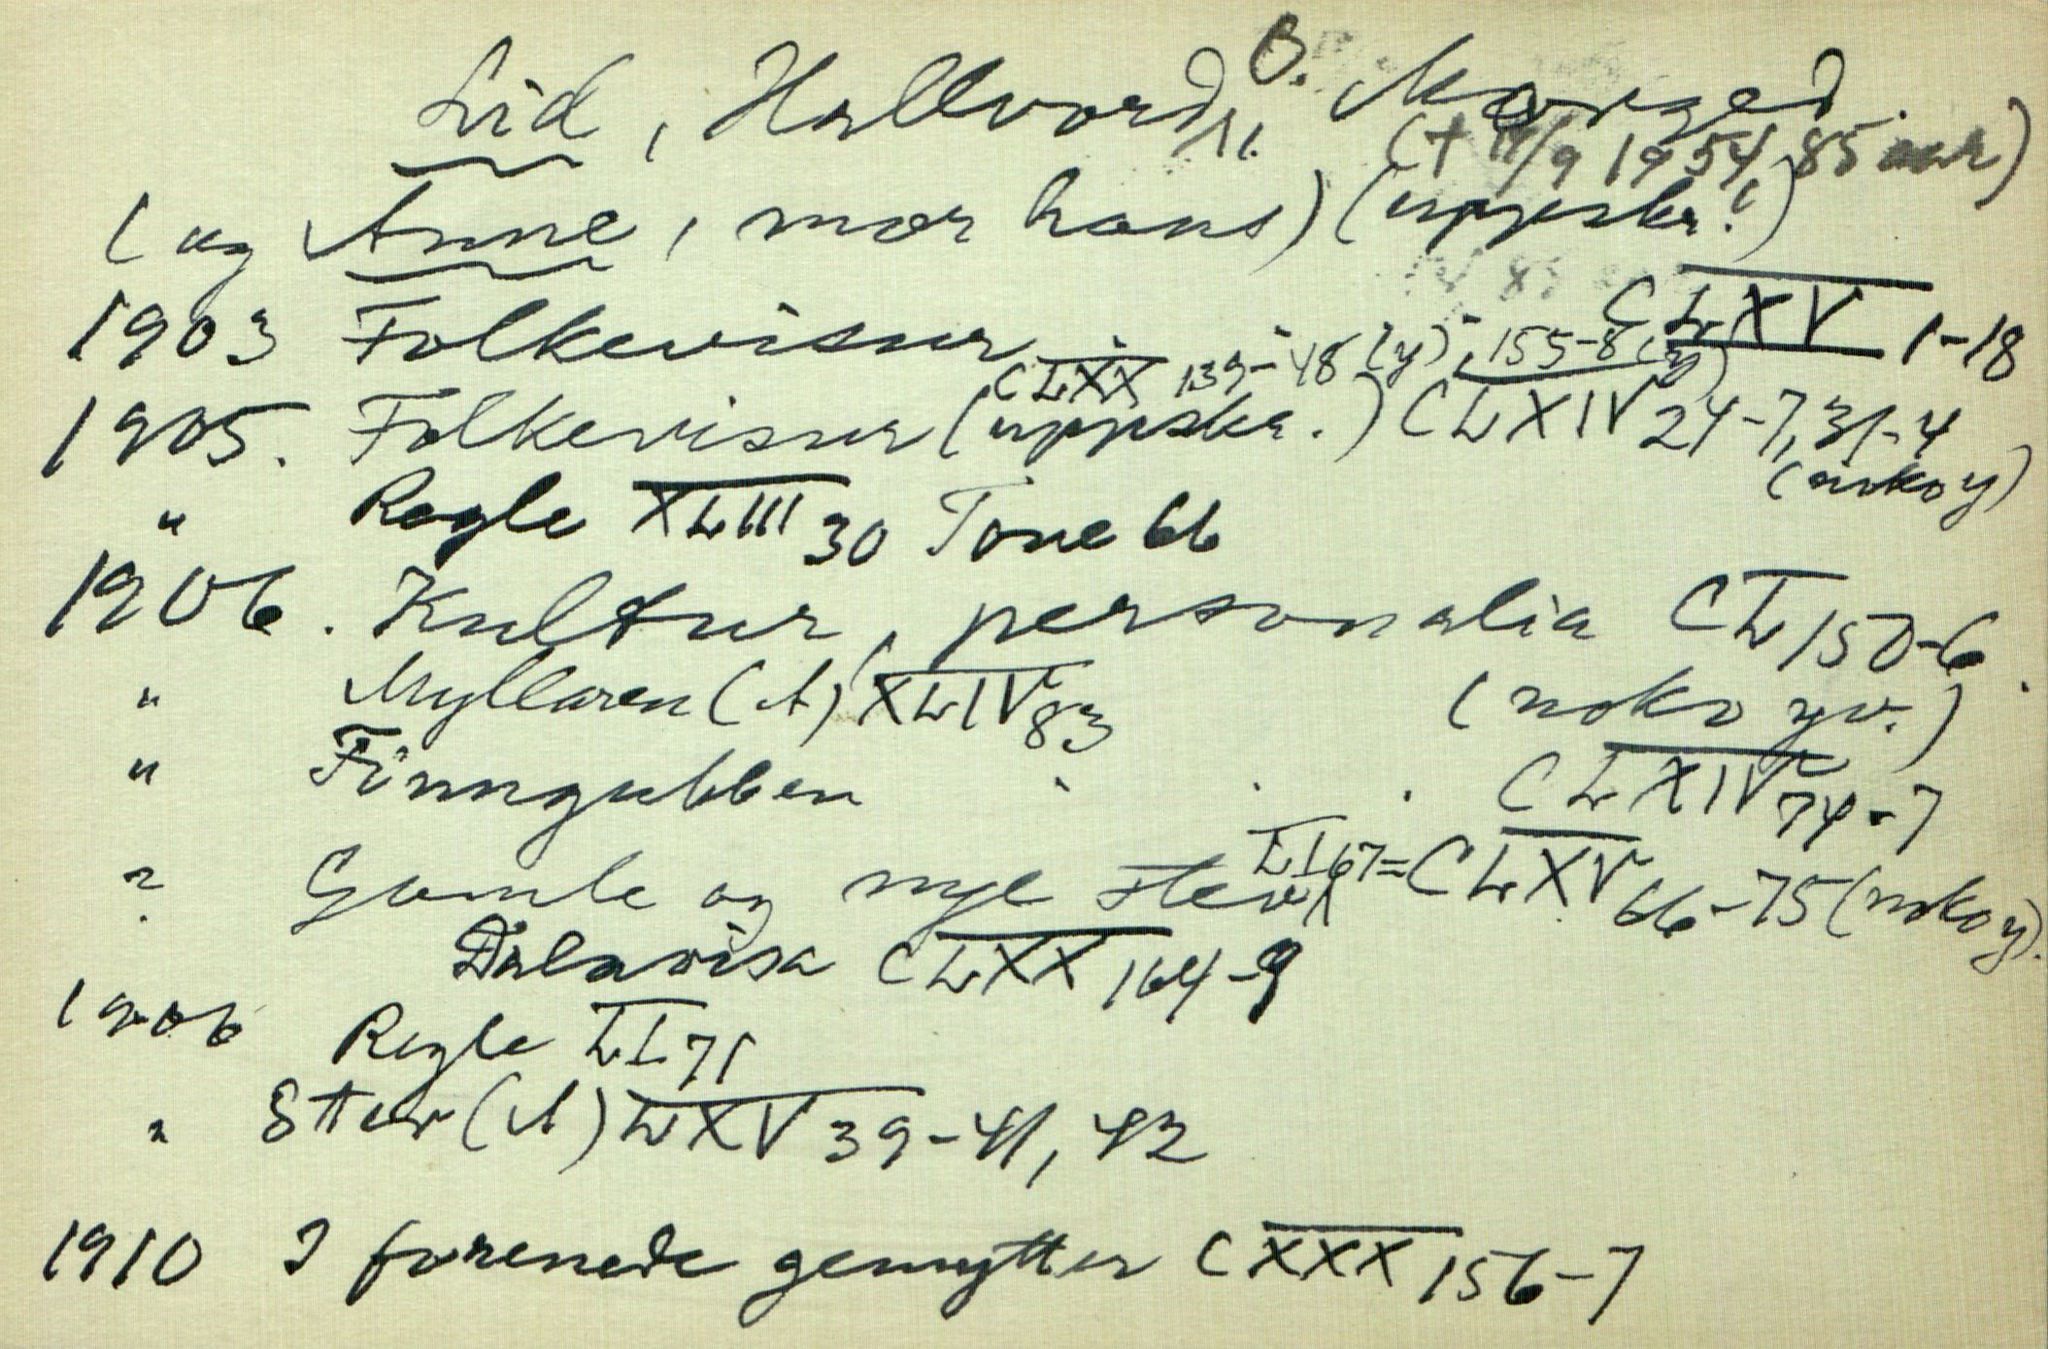 Lid, Hallvard B. Morgedal.
(† 11/9 1954, 85 aar)
(og Anne, mor hans) (uppskr.)
1903 Folkevisur CLXV 1-18
CLXX 139-48 (y), 155-8 (y)
1905. Folkevisur (uppskr.) CLXIV 24-7, 31-4
(noko y)
" Regle XLIII 30 Tone 66
1906. Kultur, personalia CL 150-6.
" Myllaren (A) XLIV 83 (noko yv.)
" Finngubben . . . CLXIV 74-7
? Gamle og nye stev, LI 67 = CLXV 66-75 (noko y).
Dalavisa CLXX 164-9
1906 Regle LI 71
" Stev (A) LXV 39-41, 42
1910 I forenede gemytter CXXX 156-7